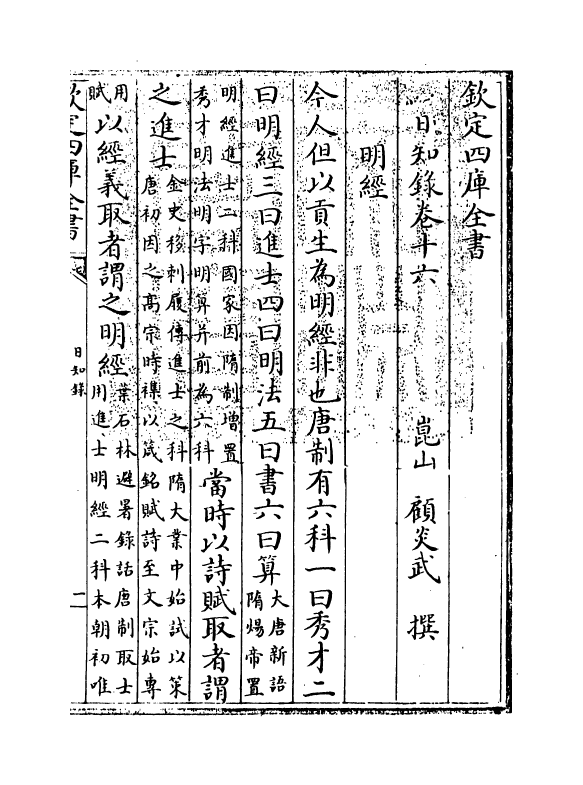 欽定四庫全書
日知錄卷十六　崑山　顧炎武　撰
明經
今人但以貢生為明經非也唐制有六科一曰秀才二
曰明經三曰進士四曰明法五曰書六曰算大唐新語
隋煬帝置
明經進士二科國家因隋制增置
秀才明法明字明算并前為六科當時以詩賦取者謂
之進士金史移剌履傳進士之科隋大業中始試以策
唐初因之髙宗時襍以箴銘賦詩至文宗始専
用
賦以經義取者謂之明經葉石林避暑錄話唐制取士
用進士明經二科本朝初唯
欽定四庫全書
日知錄
二